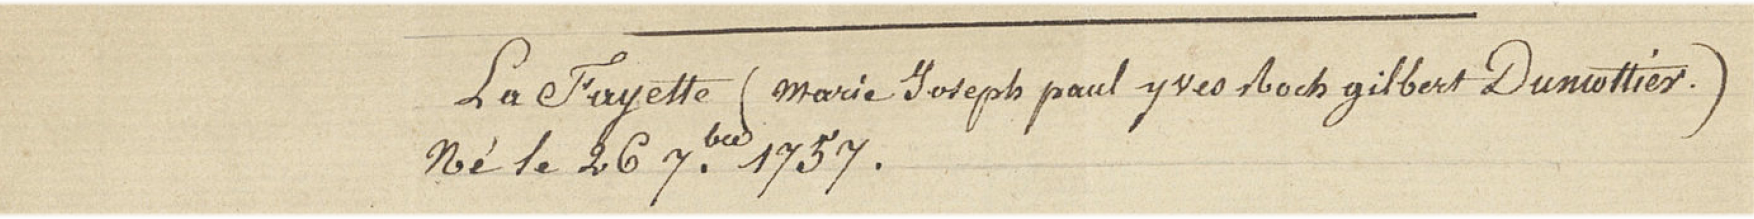 La Fayette (Marie Joseph paul yves Roch gilbert Dumottier.)
Né le 26 7.bre 1757.